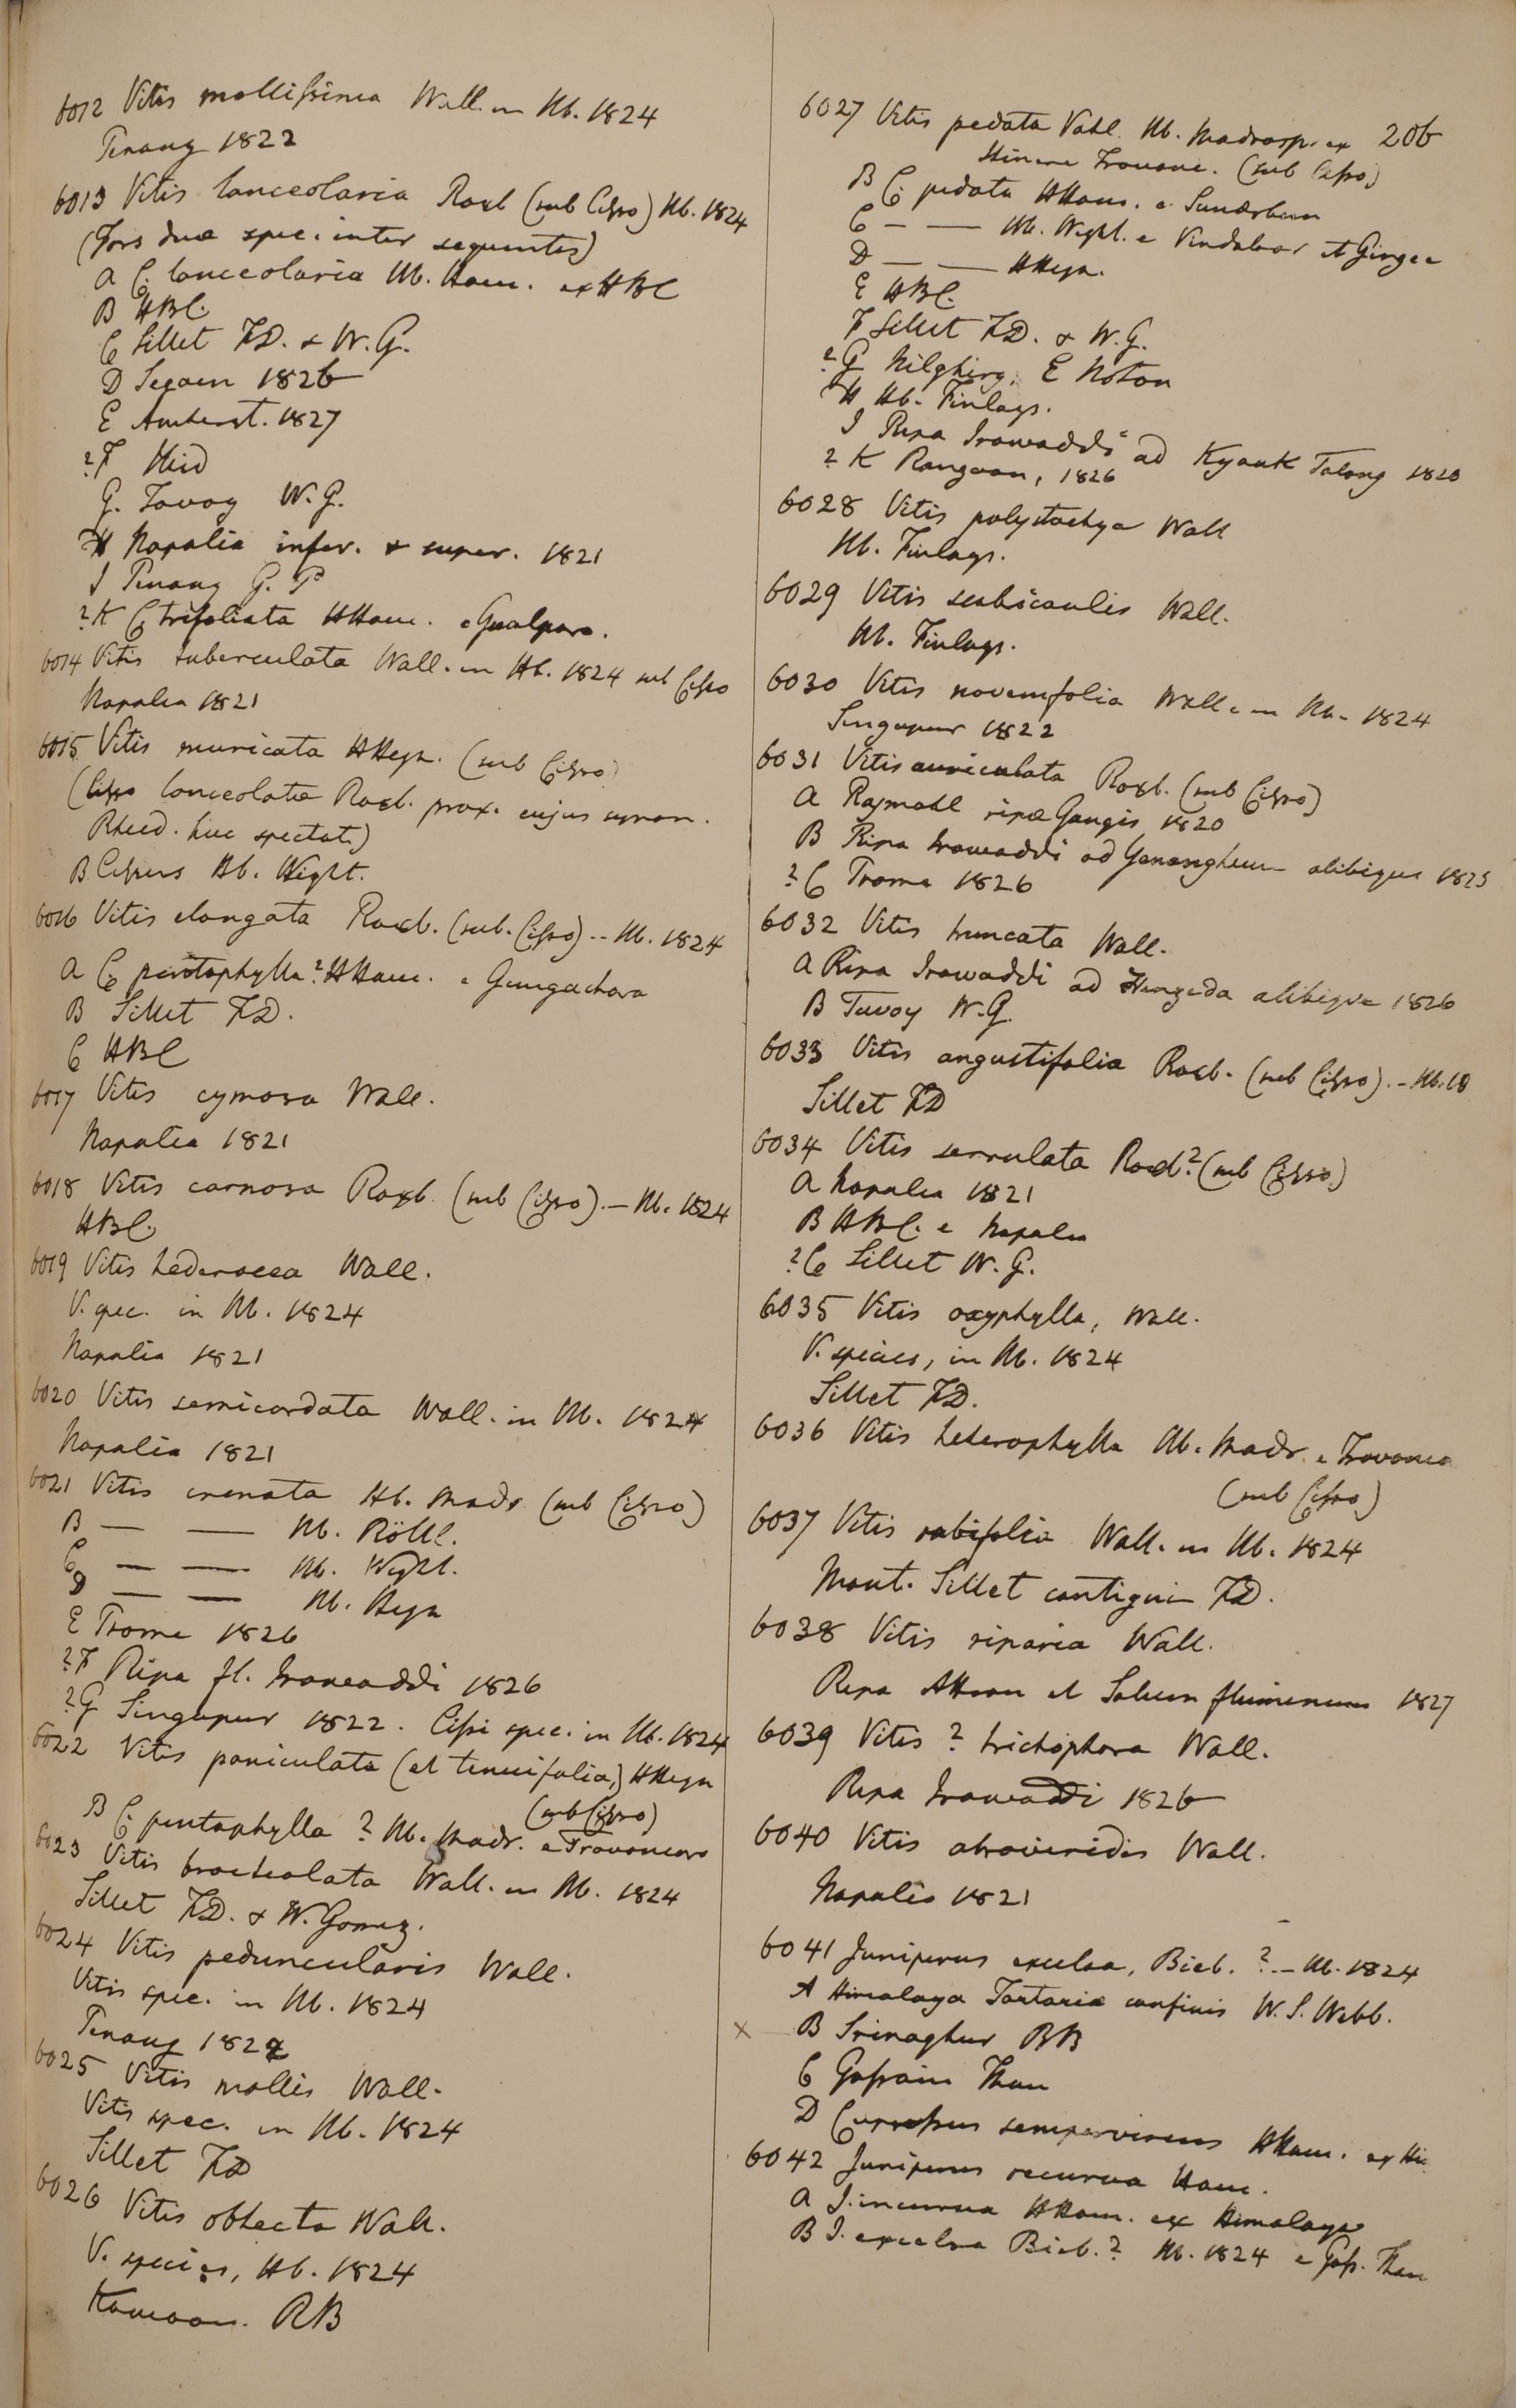 6012 Vitis mollissima Wall. in Hb. 1824
Penang 1822
6013 Vitis lanceolaria Roxb (sub Cisso) Hb. 1824
(Fors duæ spec. inter sequentes)
A C. lanceolaria Hb. Ham. ex HBC
B HBC.
C Sillet FD. & W.G.
D Segaen 1826
E Amherst. 1827
?F Ibid
G. Tavoy W.G.
H Napalia infer. & super. 1821
I Penang G. P
?K C. trifoliata HHam. e Gualpara.
6014 Vitis tuberculata Wall. in Hb. 1824 sub Cisso
Napalia 1821
6015 Vitis muricata HHeyn. (sub Cisso)
(Cisso lanceolatæ Roxb. prox. cujus synon.
Rheed. huc spectat.)
B Cissus Hb. Wight.
6016 Vitis elongata Roxb. (sub. Cisso) -- Hb. 1824
A C. pentaphylla? HHam. e Gungachora
B Sillet FD.
C HBC
6017 Vitis cymosa Wall.
Napalia 1821
6018 Vitis carnosa Roxb. (sub Cisso). — Hb. 1824
HBC.
6019 Vitis hederacea Wall.
V. spec. in Hb. 1824
Napalia 1821
6020 Vitis semicordata Wall. in Hb. 1824
Napalia 1821
6021 Vitis crenata Hb. Madr. (sub Cisso)
B — — Hb. Röttl.
C — — Hb. Wight.
D — — Hb. Heyn
E Prome 1826
?F Ripa fl. Irawaddi 1826
?G Singapur 1822. Cissi spec. in Hb. 1824
6022 Vitis paniculata (et tenuifolia,) HHeyn
(sub Cisso)
B C. pentaphylla ? Hb. Madr. e Travancore
6023 Vitis bracteolata Wall. in Hb. 1824
Sillet FD. & W. Gomez.
6024 Vitis peduncularis Wall.
Vitis spec. in Hb. 1824
Penang 1822
6025 Vitis mollis Wall.
Vitis spec. in Hb. 1824
Sillet FD
6026 Vitis obtecta Wall.
V. species, Hb. 1824
Kamoon. RB
206
6027 Vitis pedata Vahl. Hb. Madrasp. ex
itinere Travanc. (sub Cisso)
B C. pedata HHam. e Sunderbun
C — — Hb. Wight. e Vindaloor et Gingee
D — — HHeyn.
E HBC.
F Sillet FD. & W.G.
?G Nilghiry, E Noton
H Hb. Finlays.
I Ripa Irawaddi ad Kyouk Talong 1826
?K Rangoon, 1826
6028 Vitis polystachya Wall
Hb. Finlays.
6029 Vitis scabricaulis Wall.
Hb. Finlays.
6030 Vitis novemfolia Wall. in Hb. 1824
Singapur 1822
6031 Vitis auriculata Roxb. (sub Cisso)
A Rajmahl ripæ Gangis 1820
B Ripa Irawaddi ad Yenangheum alibique 1825
?C Prome 1826
6032 Vitis truncata Wall.
A Ripa Irawaddi ad Henzeda alibique 1826
B Tavoy W.G.
6033 Vitis angustifolia Roxb. (sub Cisso). – Hb. 18
Sillet FD
6034 Vitis serrulata Roxb? (sub Cisso)
A Napalia 1821
B HBC. e Napalia
?C Sillet W. G.
6035 Vitis oxyphylla, Wall.
V. species, in Hb. 1824
Sillet FD.
6036 Vitis heterophylla Hb. Madr. e Travanca
(sub Cisso)
6037 Vitis rubifolia Wall. in Hb. 1824
Mont. Sillet contigui FD.
6038 Vitis riparia Wall.
Ripa Attran et Saluen fluminum 1827
6039 Vitis ? trichophora Wall.
Ripa Irawaddi 1826
6040 Vitis atroviridis Wall.
Napalia 1821
6041 Juniperus excelsa, Bieb. ? – Hb. 1824
A Himalaya Tartariæ confinis W. S. Webb.
x B Srinaghur RB
C Gossain Than
D Cupressus sempervirens HHam. ex Hi
6042 Juniperus recurva Ham.
A J. incurva HHam. ex Himalaya
B J. excelsa Bieb. ? Hb. 1824 e Goss. Than